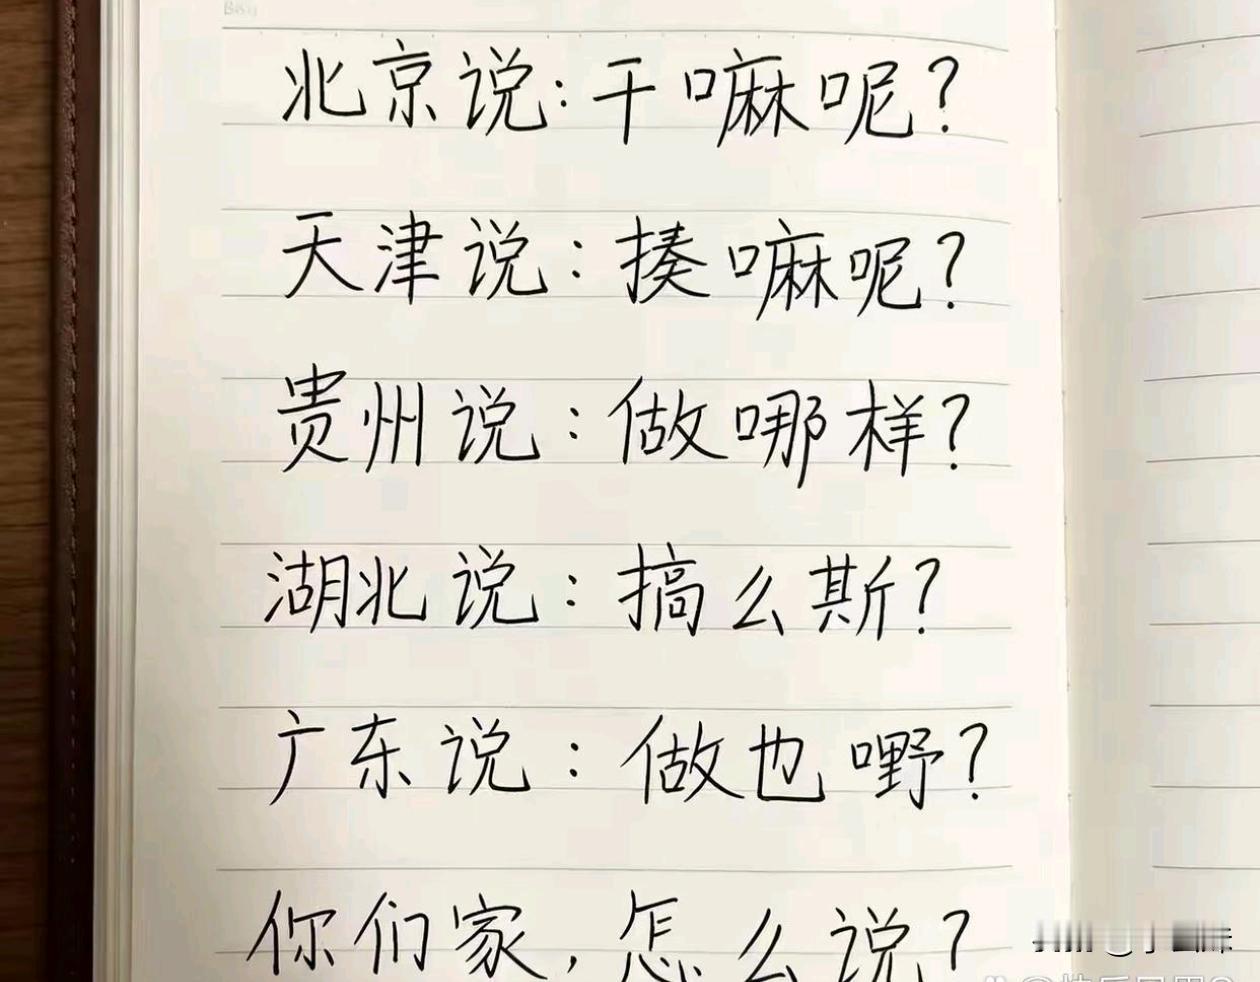 北京说:干嘛呢?
天津说:揍嘛呢?
贵州说:做哪样?
湖北说:搞么斯?
广东说:做也嘢?
你们家,怎么说?